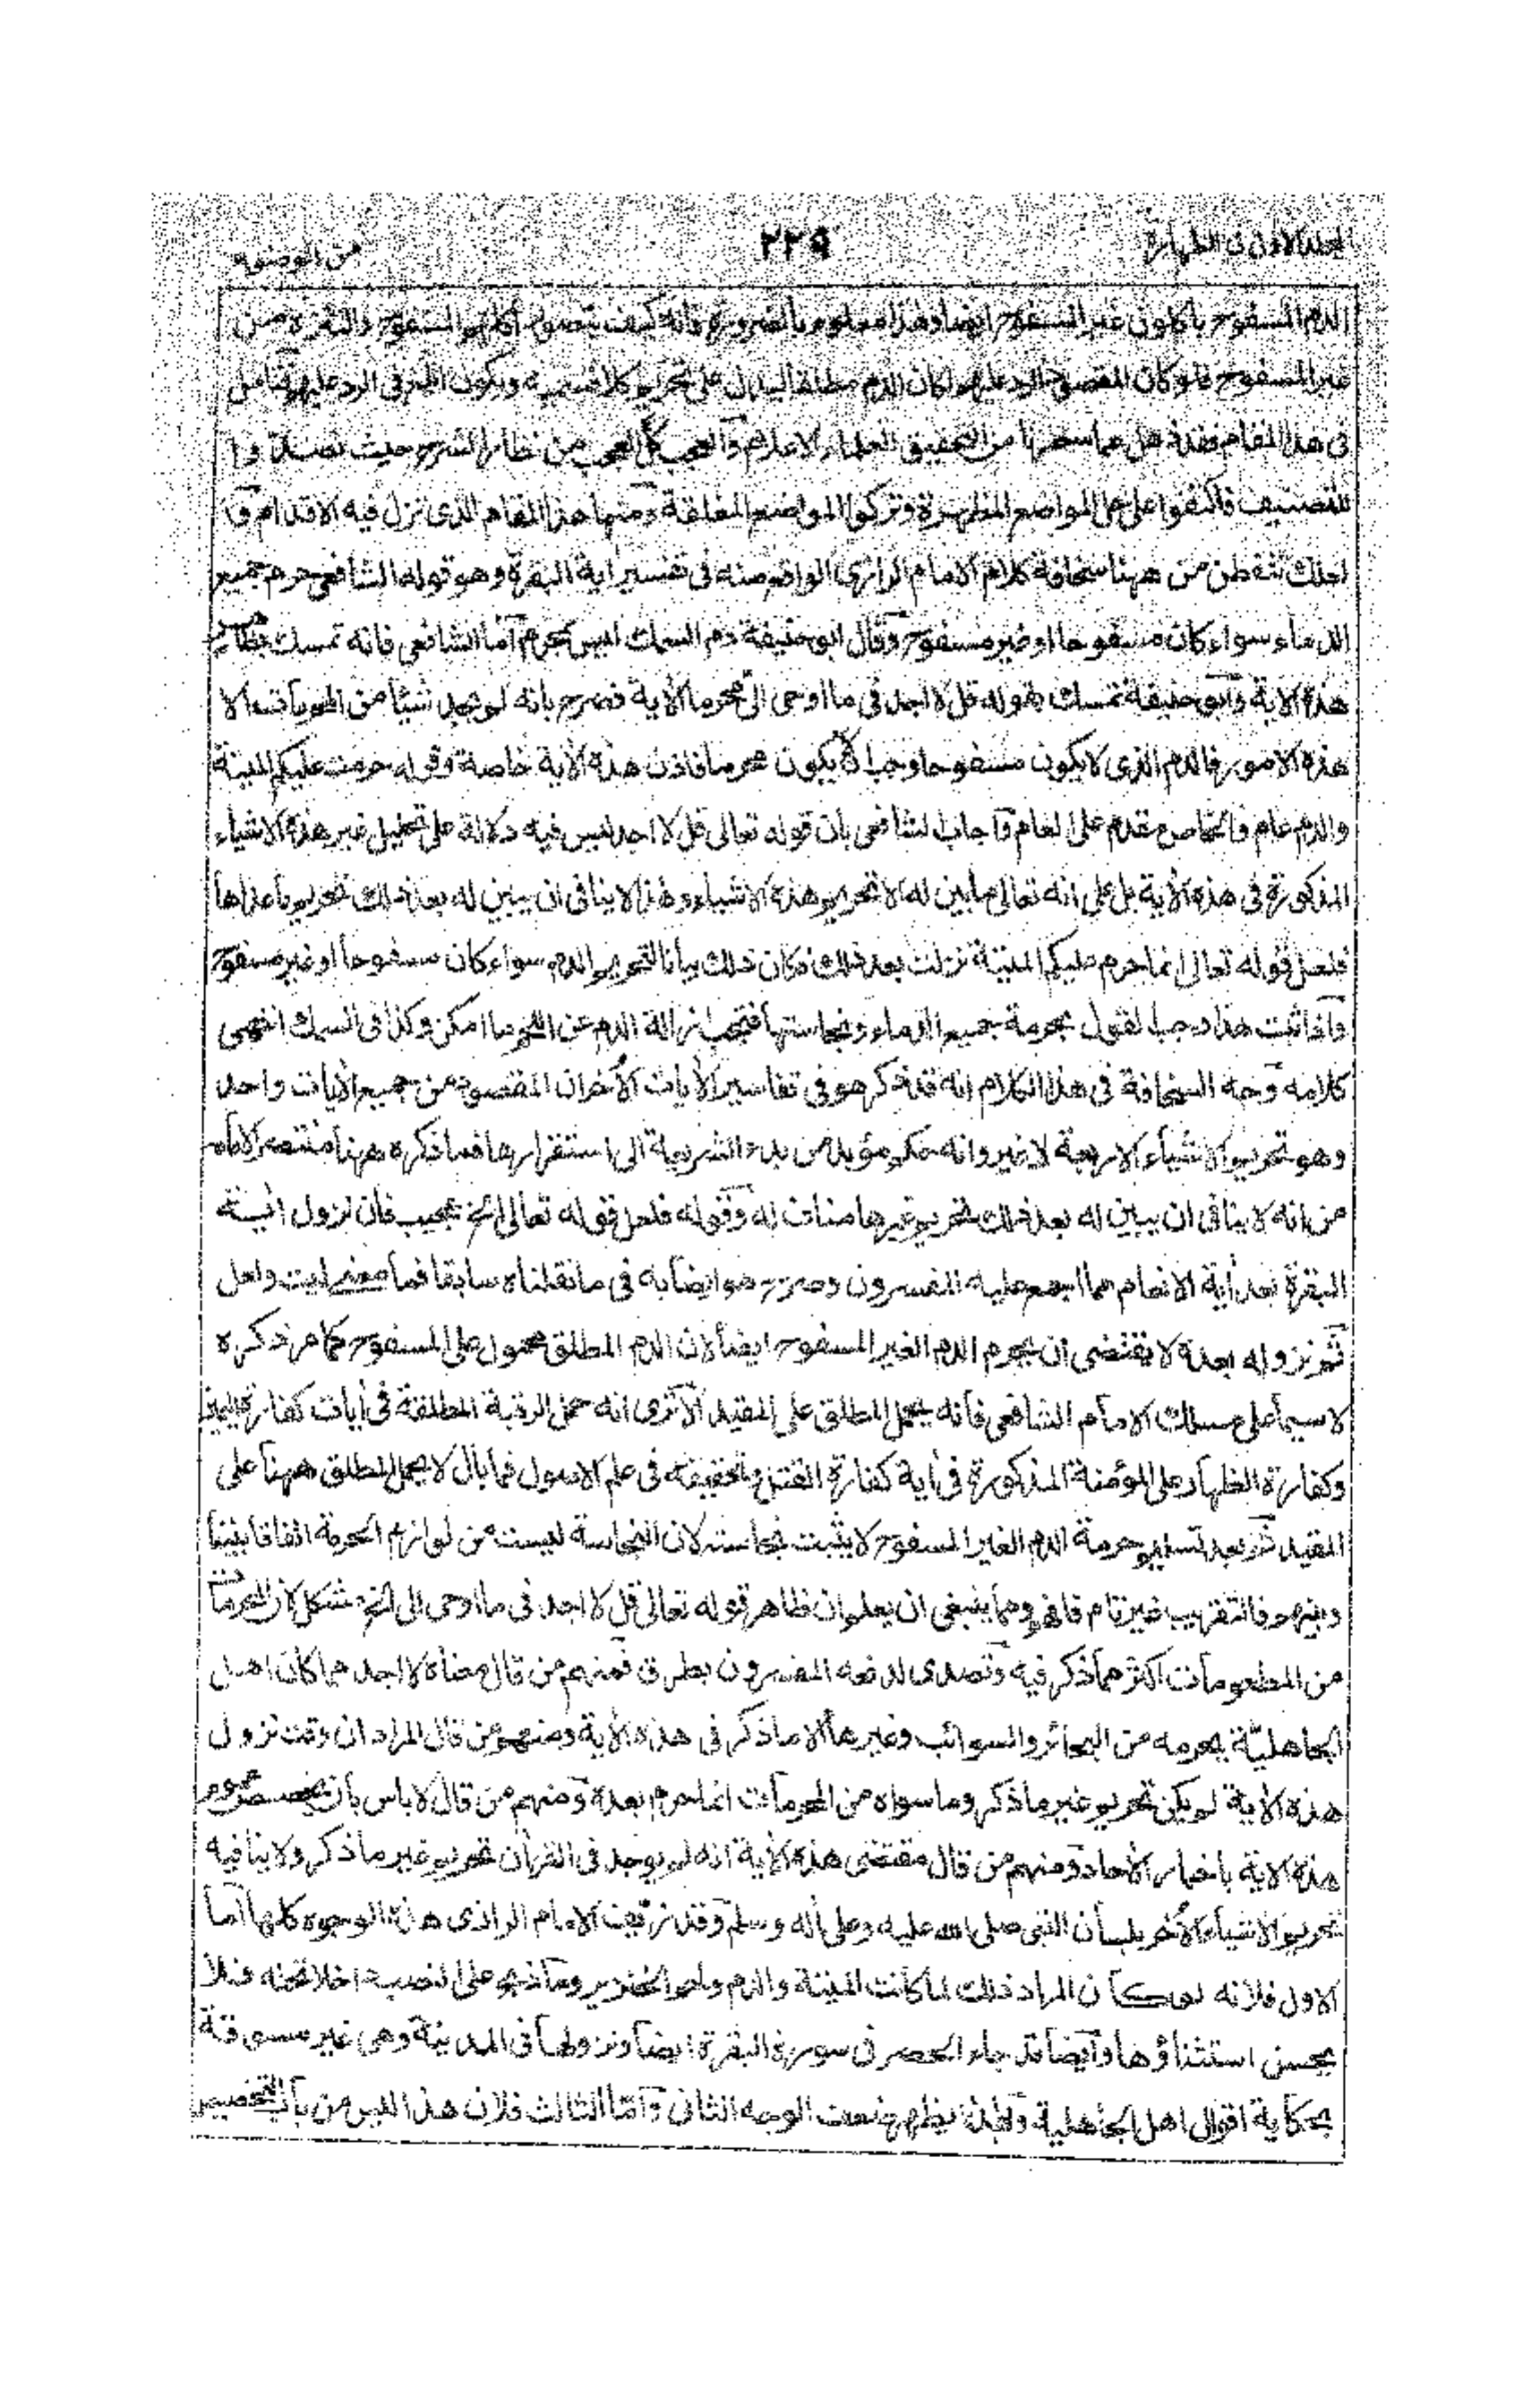 المجلد الاول فى الطهارة ٢٢٩ من الوضوء
الدم المسفوح يأكلون غير المسفوح ايضا وهذا معلوم بالضرورة فانه كيف يتصور اكلهم المسفوح والتنزه من
غير المسفوح فلو كان المقصود الرد عليهم لكان الدم مطلقا ليدل على تحريم كلا قسميه ويكون ابلغ فى الرد عليهم فتأمل
فى هذا المقام فقد ذهل عما سخرنا من التحقيق العلماء الاعلام والعجب كل العجب من نظار الشرح حيث تصدوا
للتصنيف فاكتفوا على حل المواضع الظهيرة وتركوا المواضع المغلقة ومنها هذا المقام الذى تزل فيه الاقدام و
لعلك تتفطن من ههنا سخافة كلام الامام الرازى الواقع منه فى تفسير أية البقرة وهو قوله الشافعى حرم جميع
الدماء سواء كان مسفوحا او غير مسفوح وقال ابو حنيفة دم السمك ليس بمحرم أما الشافعى فانه تمسك بظاهر
هذه الاية وابو حنيفة تمسك بقوله قل لا اجد فى ما اوحى الى محرما الأية فصرح بانه لم يجد شيئا من المحرمات الا
هذه الامور فالدم الذى لا يكون مسفوحا وجب ان لا يكون محرما فاذن هذه الأية خاصة وقوله حرمت عليكم الميتة
والدم عام والخاص مقدم على العام وآجاب الشافعى بان قوله تعالى قل لا اجد ليس فيه دلالة على تحليل غير هذه الاشياء
المذكورة فى هذه الأية بل على انه تعالى ما بين له الا تحريم هذه الاشياء وهذا لا ينافى ان يبين له بعد ذلك تحريم ما عداها
فلعل قوله تعالى انما حرم عليكم الميتة نزلت بعد ذلك فكان ذلك بيانا لتحريم الدم سواء كان مسفوحا او غير مسفوح
وآذا ثبت هذا وجب القول بحرمة جميع الدماء ونجاستها فتجب ازالة الدم عن اللحم ما امكن وكذا فى السمك انتهى
كلامه وجه السخافة فى هذا الكلام انه قد ذكر هو فى تفاسير الأيات الأخر ان المقصود من جميع الأيات واحد
وهو تحريم الاشياء الاربعة لا غير وانه حكم مؤبد من بدء الشريعة الى استقرارها فما ذكره ههنا منتصرا لامامه
من انه لا ينافى ان يبين له بعد ذلك تحريم غيرها مناف له وقوله فلعل قوله تعالى الخ عجيب فان نزول أية
البقرة بعد أية الانعام مما اجمع عليه المفسرون وصرح هو ايضا به فى ما نقلناه سابقا فما معنى ليت ولعل
ثم نزوله بعده لا يقتضى ان يحرم الدم الغير المسفوح ايضا لان الدم المطلق محمول على المسفوح كما مر ذكره
لا سيما على مسلك الامام الشافعى فانه يحمل المطلق على المقيد الا ترى انه حمل الرقبة المطلقة فى أيات كفارة اليمين
وكفارة الظهار على المؤمنة المذكورة فى أية كفارة القتل وتحقيقه فى علم الاصول فما بال لا يحمل المطلق ههنا على
المقيد ثم بعد تسليم حرمة الدم الغير المسفوح لا يثبت نجاسته لان النجاسة ليست من لوازم الحرمة اتفاقا بيننا
وبينهم فالتقريب غير تام فافهم ومما ينبغى ان يعلم ان ظاهر قوله تعالى قل لا اجد فى ما اوحى الى الخ مشكل لان المحرمات
من المطعومات اكثر مما ذكر فيه وتصدى لدفعه المفسرون بطرق فمنهم من قال معناه لا اجد مما كان اهل
الجاهلية يحرمه من البحائر والسوائب وغيرها الا ما ذكر فى هذه الأية ومنهم من قال المراد ان وقت نزول
هذه الأية لم يكن تحريم غير ما ذكر وما سواه من المحرمات انما حرم بعده ومنهم من قال لا باس بان يخصص عموم
هذه الاية باخبار الأحاد ومنهم من قال مقتضى هذه الأية انه لم يوجد فى القرأن تحريم غير ما ذكر ولا ينافيه
تحريم الاشياء الأخر بلسان النبى صلى الله عليه وعلى أله وسلم وقد زيف الامام الرازى هذه الوجوه كلها أما
الاول فلانه لو كان المراد ذلك لما كانت الميتة والدم ولحم الخنزير وما ذبح على النصب داخلا تحته فلا
يحسن استثناؤها وأيضا قد جاء الحصر فى سورة البقرة ايضا ونزولها فى المدينة وهى غير مسبوقة
بحكاية اقوال اهل الجاهلية وبهذا يظهر ضعف الوجه الثانى وآما الثالث فلان هذا ليس من باب التخصيص